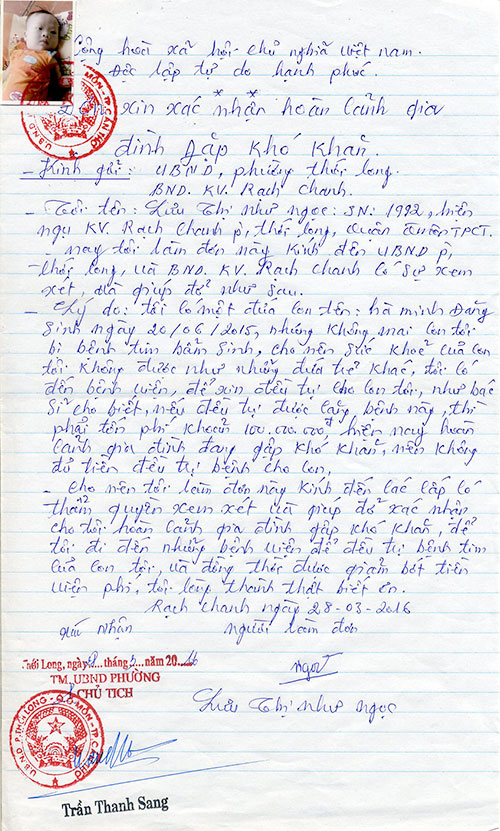 Cộng hoà xã hội chủ nghĩa việt nam.
Độc lập tự do hạnh phúc.
Đơn xin xác nhận hoàn cảnh gia
đình Gặp khó khăn
- Kính gửi: UBND, phường thới long.
BND. KV. Rạch chanh.
- Tôi tên: Lưu Thị như ngọc: SN: 1992, hiện
ngụ KV. Rạch chanh p, thới long, quận ômôn TPCT.
- nay tôi làm đơn này kính đến UBND p,
thới long, và BND. KV. Rạch chanh có sự xem
xét, và giúp đở như sau.
- Lý do: tôi có một đứa con tên: hà minh Đăng
sinh ngày 20/06/2015, nhưng không mai con tôi
bị bệnh tim bẩm sinh, cho nên sức khoẻ của con
tôi không được như những đứa trẻ khác, tôi có
đến bệnh viện, để xin đều trị cho con tôi, như bác
sĩ cho biết, nếu đều trị được căng bệnh này, thì
phải tốn phí khoản 100.000.000đ hiện nay hoàn
cảnh gia đình đang gặp khó khăn, nên không
đủ tiền đều trị bệnh cho con,
- cho nên tôi làm đơn này kính đến các cấp có
thẩm quyền xem xét và giúp đở xác nhận
cho tôi hoàn cảnh gia đình gặp khó khăn, để
tôi đi đến những bệnh viện để đều trị bệnh tim
của con tôi, và đồng thời được giảm bớt tiền
viện phí, tôi lòng thành thật biết ơn.
Rạch chanh ngày 28-03-2016
xác nhận người làm đơn
Thới Long, ngày... tháng 3 năm 2016
TM. UBND PHƯỜNG
CHỦ TỊCH
ngọc
Lưu Thị như ngọc
U.B.N.D P.THỚI LONG - Q.Ô MÔN - TP CẦN THƠ
Trần Thanh Sang